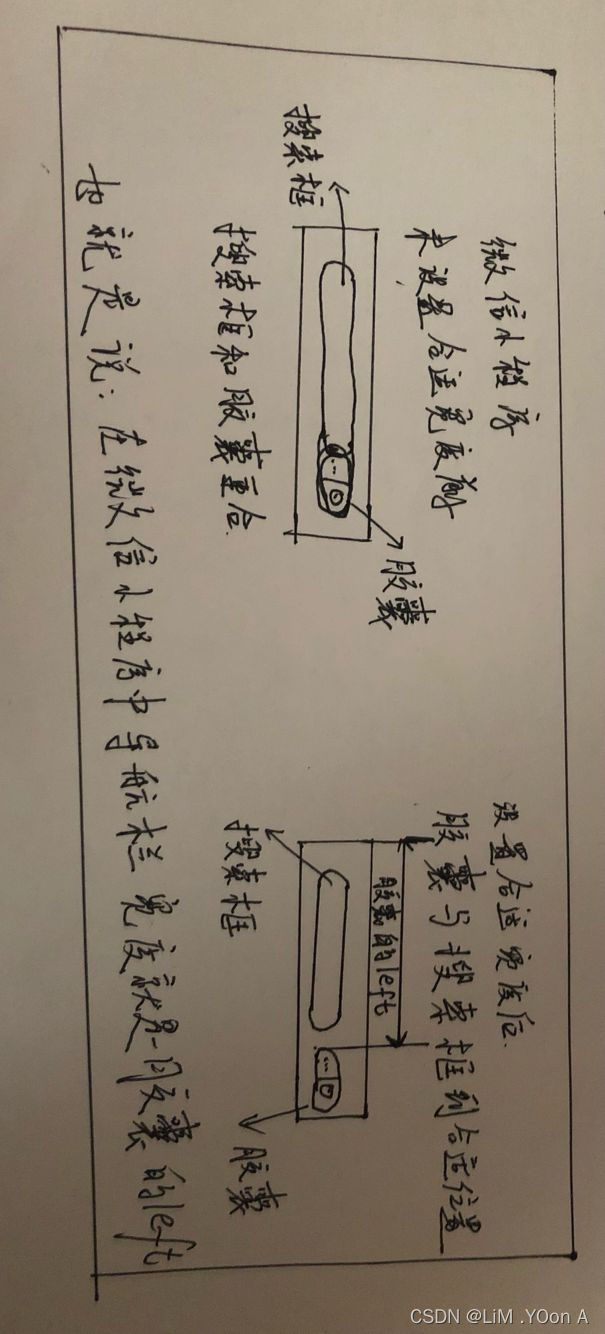 微信小程序
未设置合适宽度前
搜索框
胶囊
搜索框和胶囊重合.
设置合适宽度后.
胶囊与搜索框到合适位置
胶囊的left
搜索框
胶囊
也就是说:在微信小程序中导航栏宽度就是胶囊的left
CSDN @LiM .YOon A